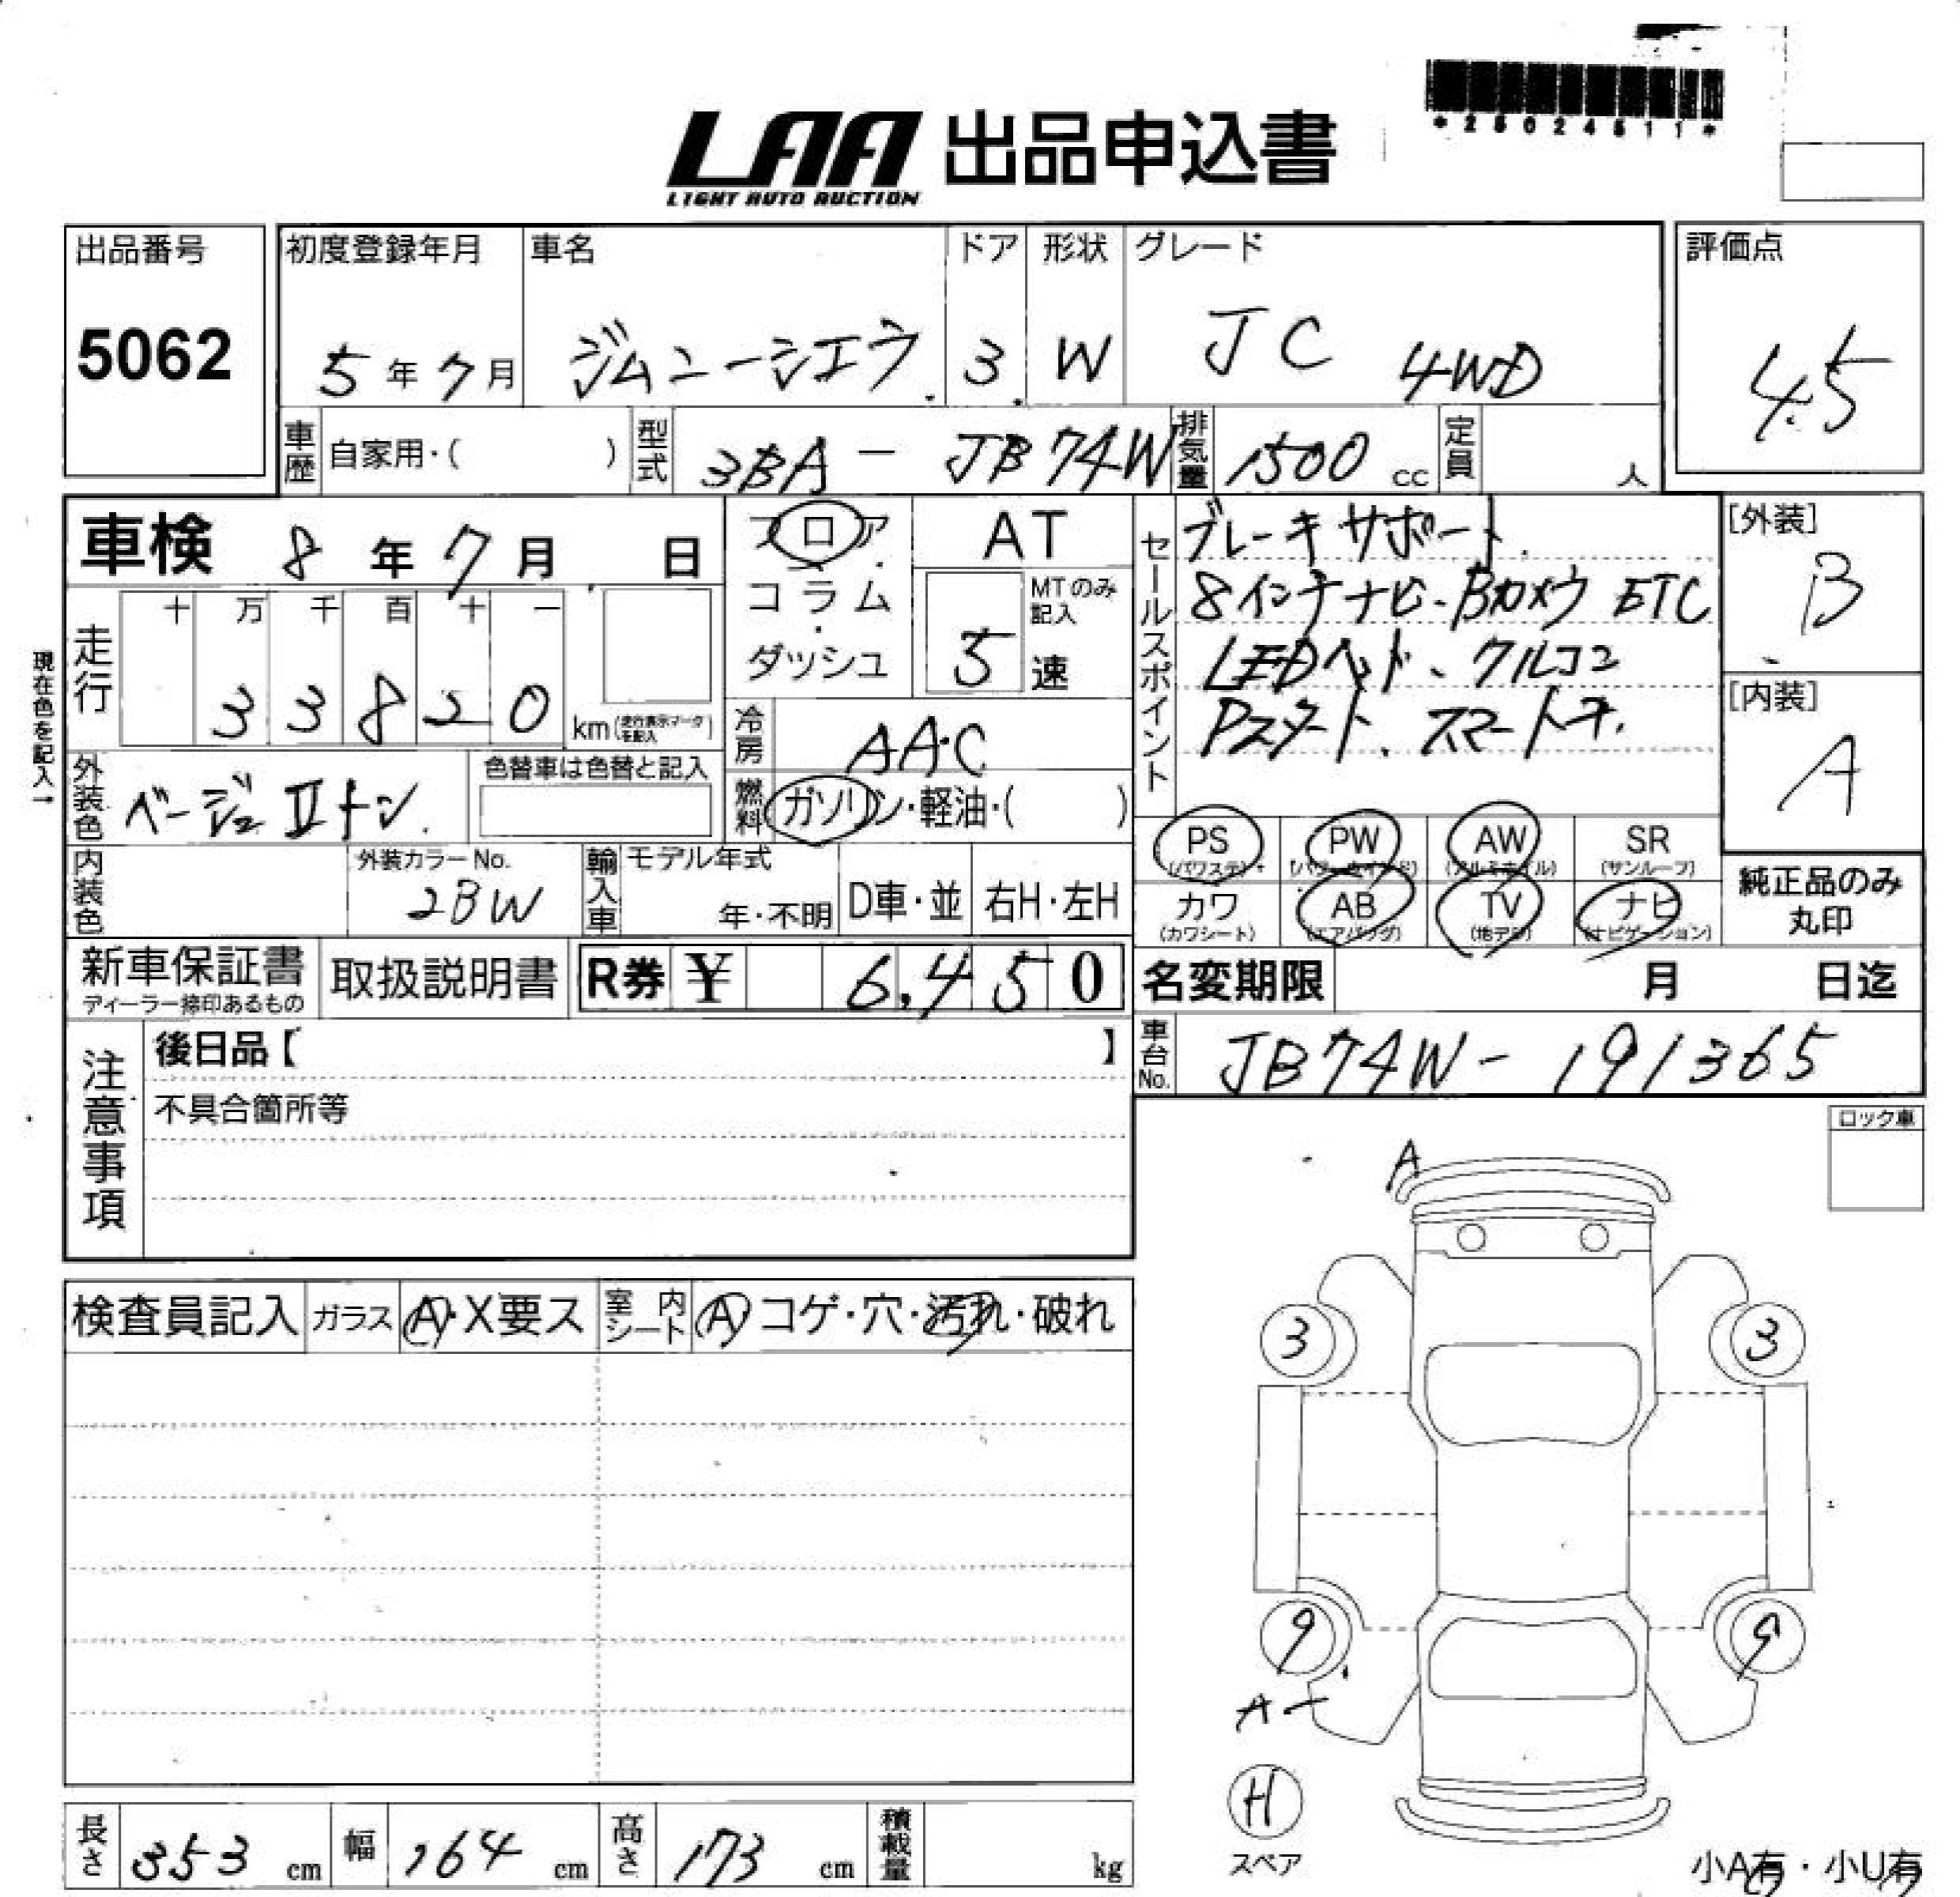 *25024511*
LAA 出品申込書
LIGHT AUTO AUCTION
出品番号
5062
初度登録年月
5年7月
車名
ジムニーシエラ
ドア
3
形状
W
グレード
JC 4WD
評価点
4.5
車歴
自家用・( )
型式
3BA - JB74W
排気量
1500 cc
定員
人
車検 8年7月 日
走行
十万千百十一
33820
km(走行表示マークを記入)
現在色を記入→
フロア
・
コラム
・
ダッシュ
AT
MTのみ記入
5速
冷房
AAC
燃料
ガソリン・軽油・( )
セールスポイント
ブレーキサポート
8インチナビ、Bカメラ ETC
LEDヘッド、クルコン
Pスタート、スマートキー
[外装]
B
[内装]
A
外装色
ベージュⅡトン
色替車は色替と記入
内装色
外装カラーNo.
2BW
輸入車
モデル年式
年・不明
D車・並
右H・左H
PS
(パワステ)
PW
(パワーウインド)
AW
(アルミホイル)
SR
(サンルーフ)
カワ
(カワシート)
AB
(エアバッグ)
TV
(地デジ)
ナビ
(ナビゲーション)
純正品のみ
丸印
新車保証書
ディーラー捺印あるもの
取扱説明書
R券 ¥ 6,450
名変期限 月 日迄
車台No.
JB74W-191365
注意事項
後日品【 】
不具合箇所等
ロック車
A
3
3
9
9
A
H
スペア
小A有・小U有
検査員記入
ガラス
A・X要ス
室内シート
A コゲ・穴・汚れ・破れ
長さ
353 cm
幅
164 cm
高さ
173 cm
積載量
kg